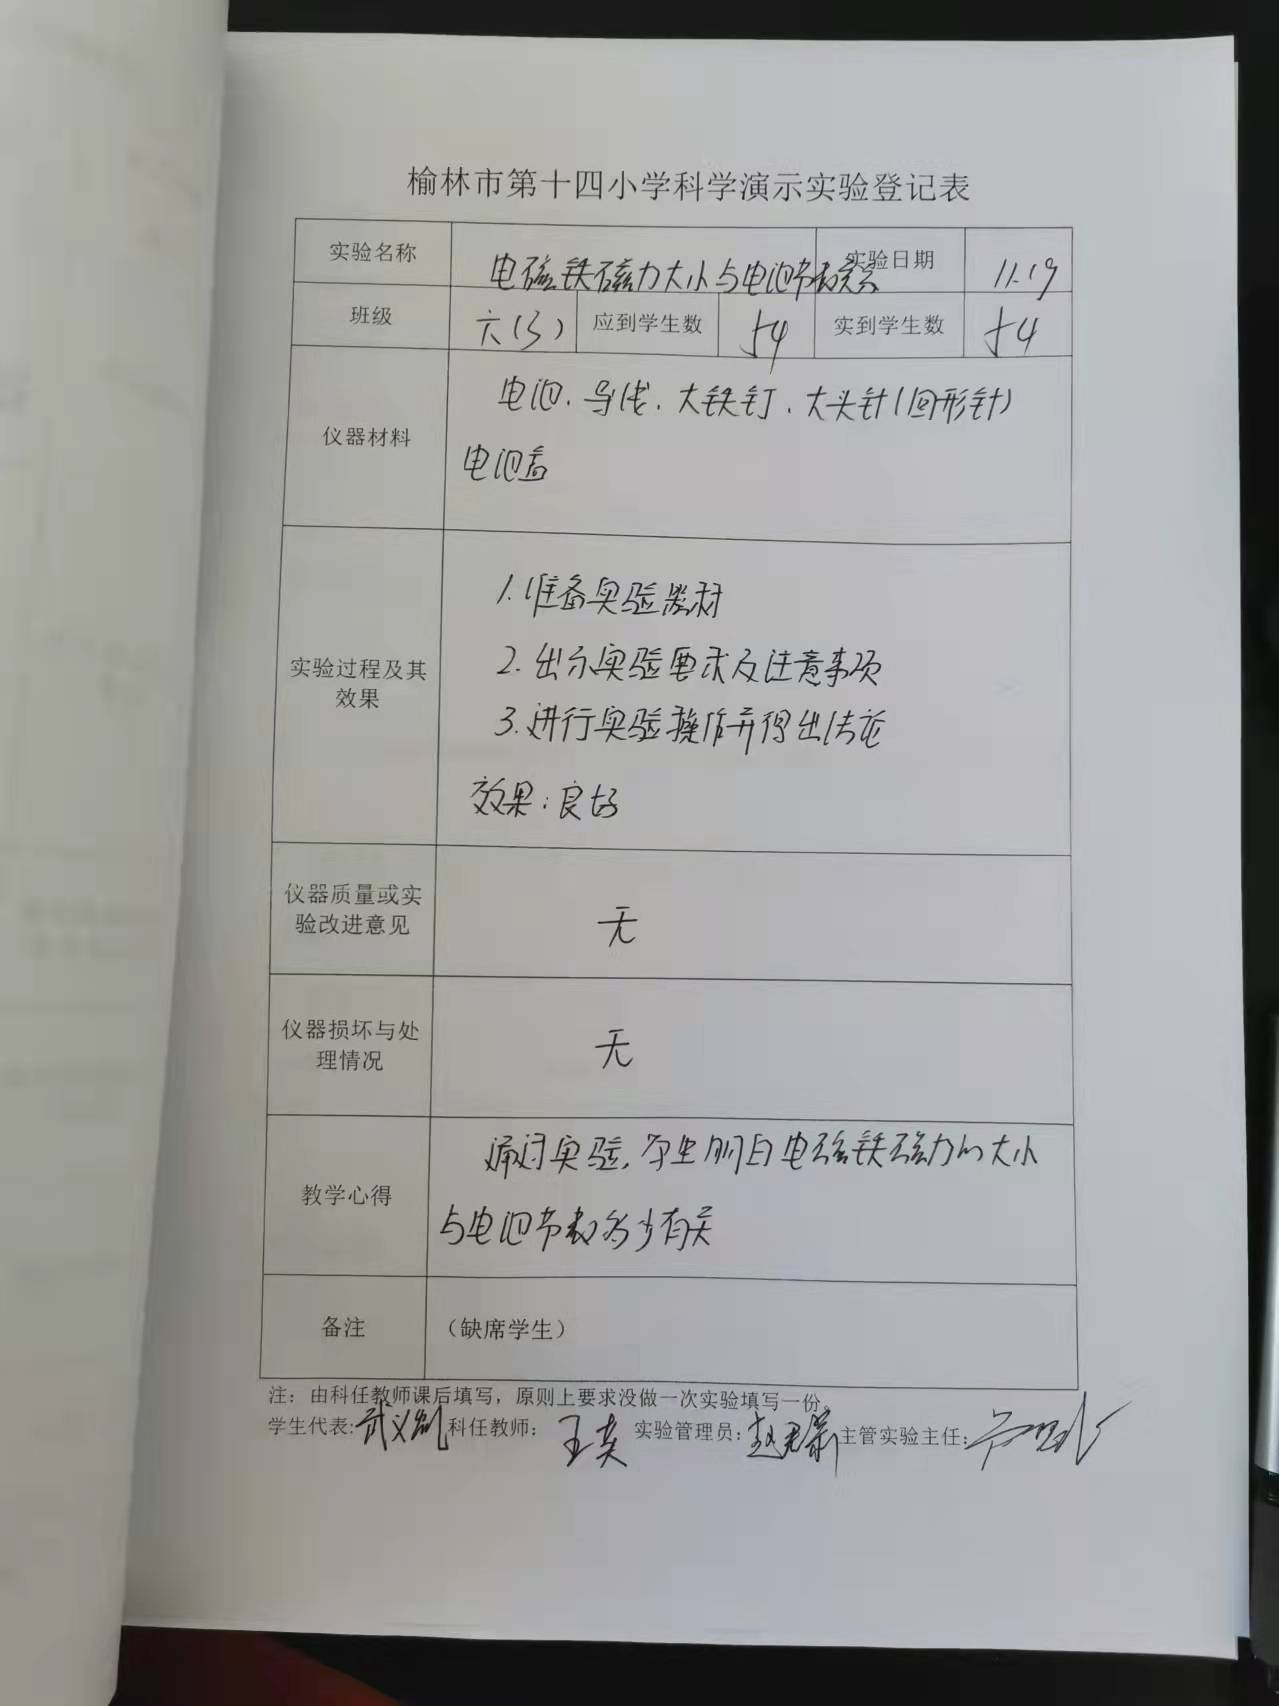 榆林市第十四小学科学演示实验登记表
实验名称 电磁铁磁力大小与电池节数 实验日期 11.19
班级 六(3) 应到学生数 54 实到学生数 54
仪器材料
电池、导线、大铁钉、大头针(回形针)
电池盒
实验过程及其
效果
1.准备实验器材
2.出示实验要求及注意事项
3.进行实验操作并得出结论
效果:良好
仪器质量或实
验改进意见
无
仪器损坏与处
理情况
无
教学心得
通过实验,学生明白电磁铁磁力的大小
与电池节数多少有关
备注 (缺席学生)
注:由科任教师课后填写,原则上要求没做一次实验填写一份。
学生代表: 科任教师: 实验管理员: 主管实验主任: